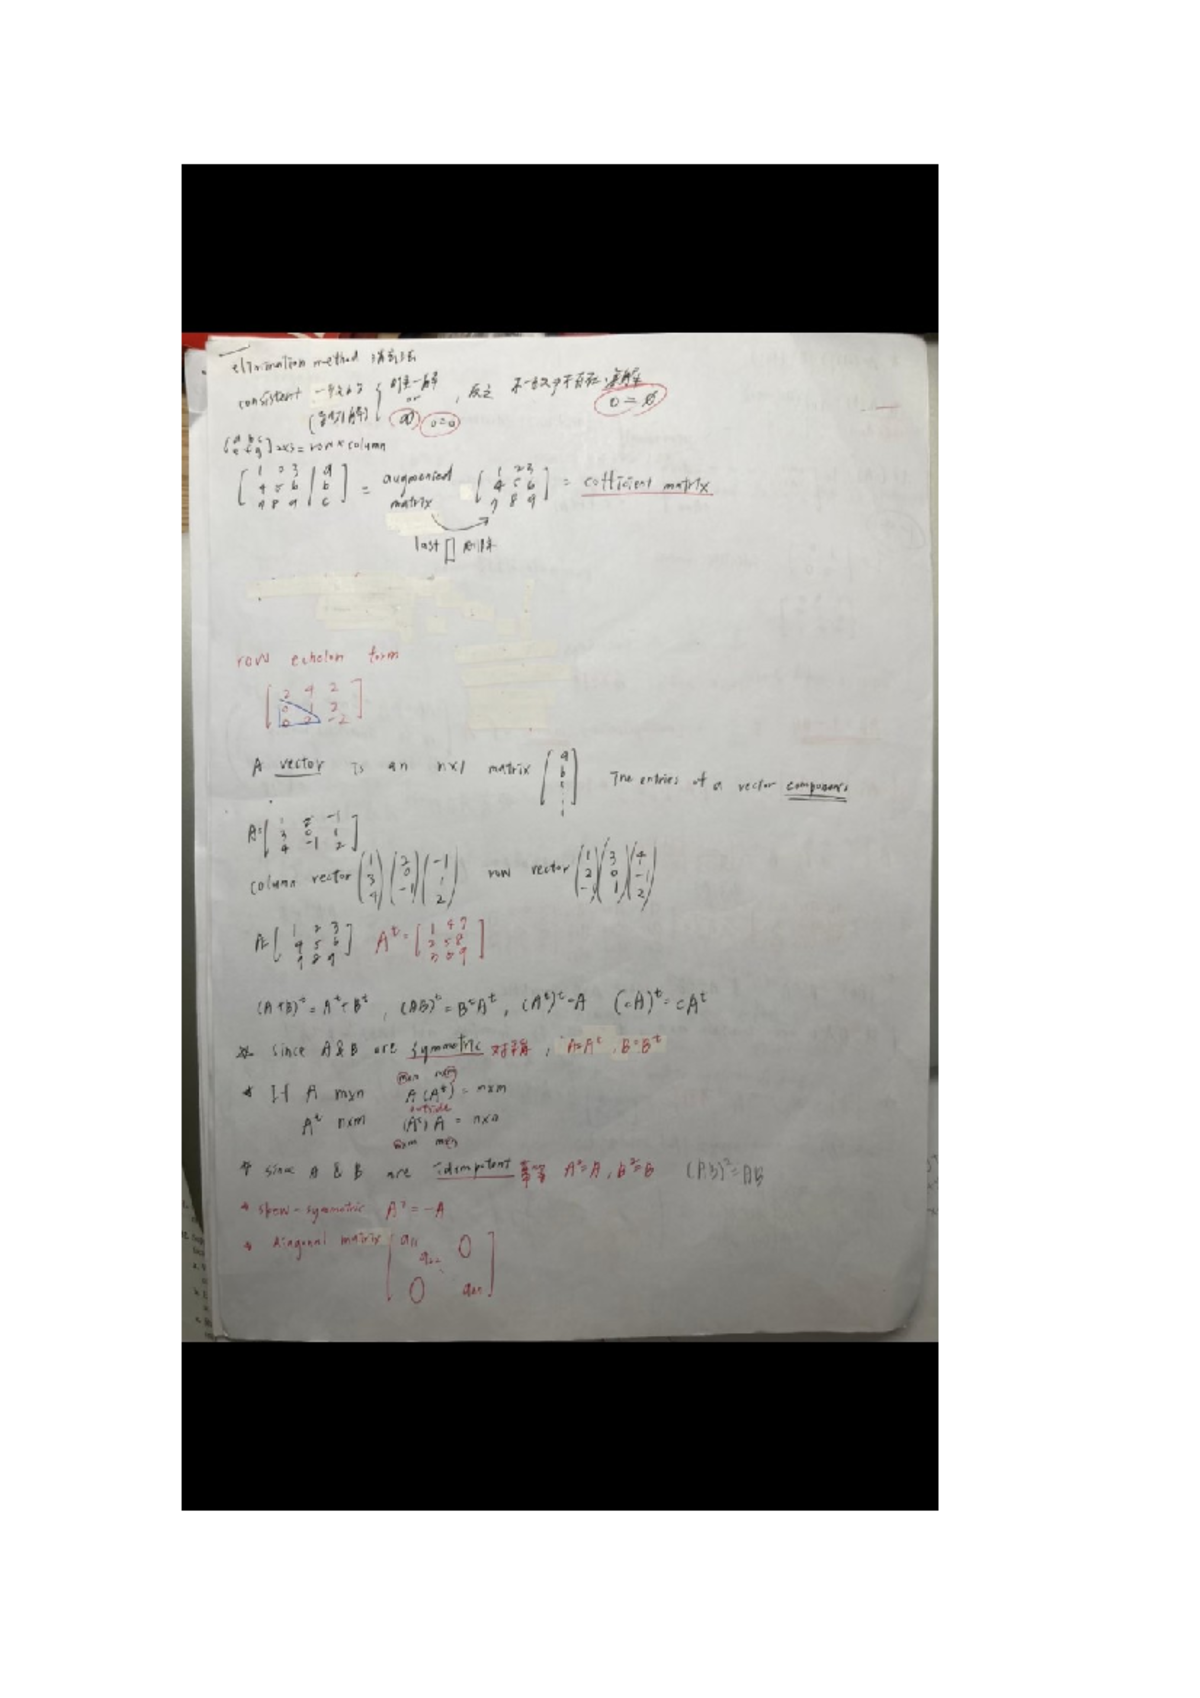 elimination method 消去法
consistent 一致的 { 唯一解
(有解) or ∞ 0=0 , 反之 不一致 無解 0=
] 2x3 = row x column
[ 1 2 3 | a
4 5 6 | b
7 8 9 | c ] = augmented matrix [ 1 2 3
4 5 6
7 8 9 ] = cofficient matrix
last [] 刪掉
row echelon form
[ 2 4 2
0 1 2
0 2 -2 ]
A vector is an nx1 matrix [ a
b
⋮ ] The entries of a vector components
A=[ 1 2 -1
3 0 1
4 -1 2 ]
column vector (1 3 4) (2 0 -1) (-1 1 2) row vector (1 2 -1) (3 0 1) (4 -1 2)
A=[ 1 2 3
4 5 6
7 8 9 ] Aᵗ=[ 1 4 7
2 5 8
3 6 9 ]
(A+B)ᵗ=Aᵗ+Bᵗ , (AB)ᵗ=BᵗAᵗ , (Aᵗ)ᵗ=A (cA)ᵗ=cAᵗ
* since A & B are symmetric 对称 , A=Aᵗ , B=Bᵗ
* If A mxn A(Aᵗ) =
outside
Aᵗ nxm (Aᵗ)A = nxn
* since A & B are idempotent 冪等 A²=A , B²=B (AB)²=AB
* skew-symmetric = -A
* diagonal matrix [ a₁₁
a₂₂ 0
0 ]